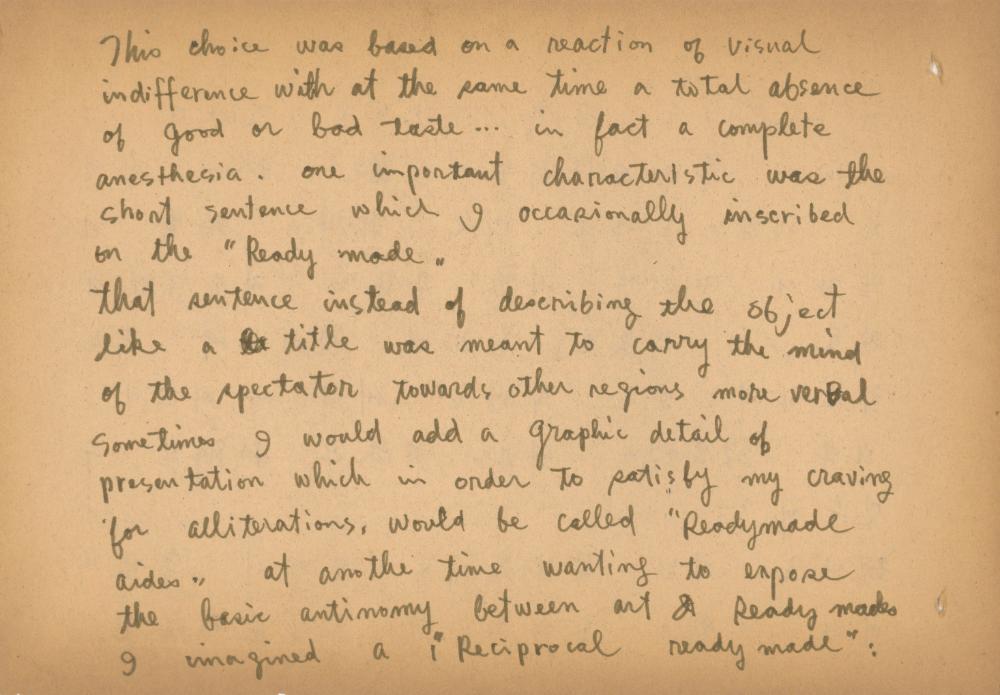 This choice was based on a reaction of visual
indifference with at the same time a total absence
of good or bad taste ... in fact a complete
anesthesia. one important characteristic was the
short sentence which I occasionally inscribed
on the "Ready made„
that sentence instead of describing the object
like a title was meant to carry the mind
of the spectator towards other regions more verbal
Sometimes I would add a graphic detail of
presentation which in order to satisfy my craving
for alliterations, would be called "Readymade
aides„ at anothe time wanting to expose
the basic antinomy between art & Ready mades
I imagined a "Reciprocal ready made":